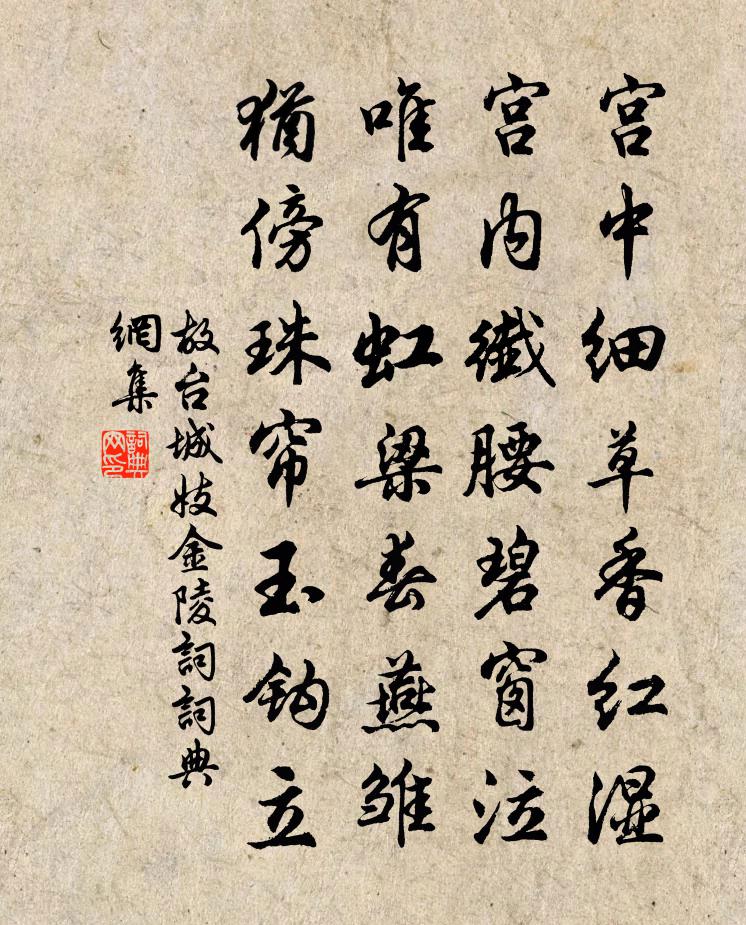 宫中细草香红湿
宫内纎腰碧窗泣
唯有虹梁春燕雏
犹傍珠帘玉钩立
故台城妓金陵詞詞典
網集
詞典
网印